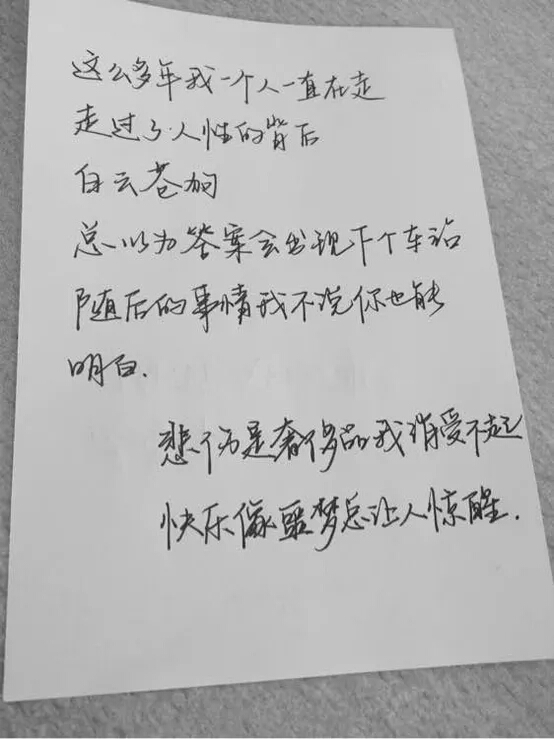 这么多年我一个人一直在走
走过了人性的背后
白云苍狗
总以为答案会出现下个车站
随后的事情我不说你也能
明白.
悲伤是奢侈品我消受不起
快乐像噩梦总让人惊醒.